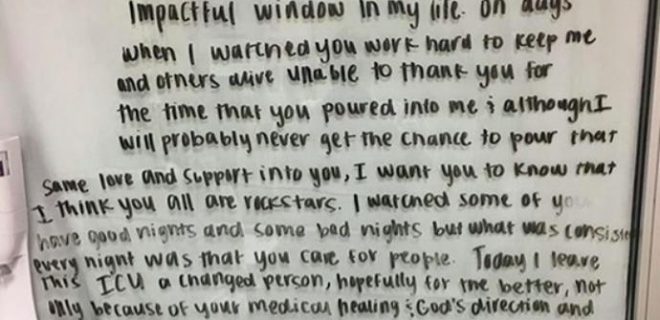 Impactful window in my life. On days
when I watched you work hard to keep me
and others alive unable to thank you for
the time that you poured into me & although I
will probably never get the chance to pour that
same love and support into you, I want you to know that
I think you all are rockstars. I watched some of you
have good nights and some bad nights but what was consistent
every night was that you care for people. Today I leave
This ICU a changed person, hopefully for the better, not
only because of your medical healing & God's direction and